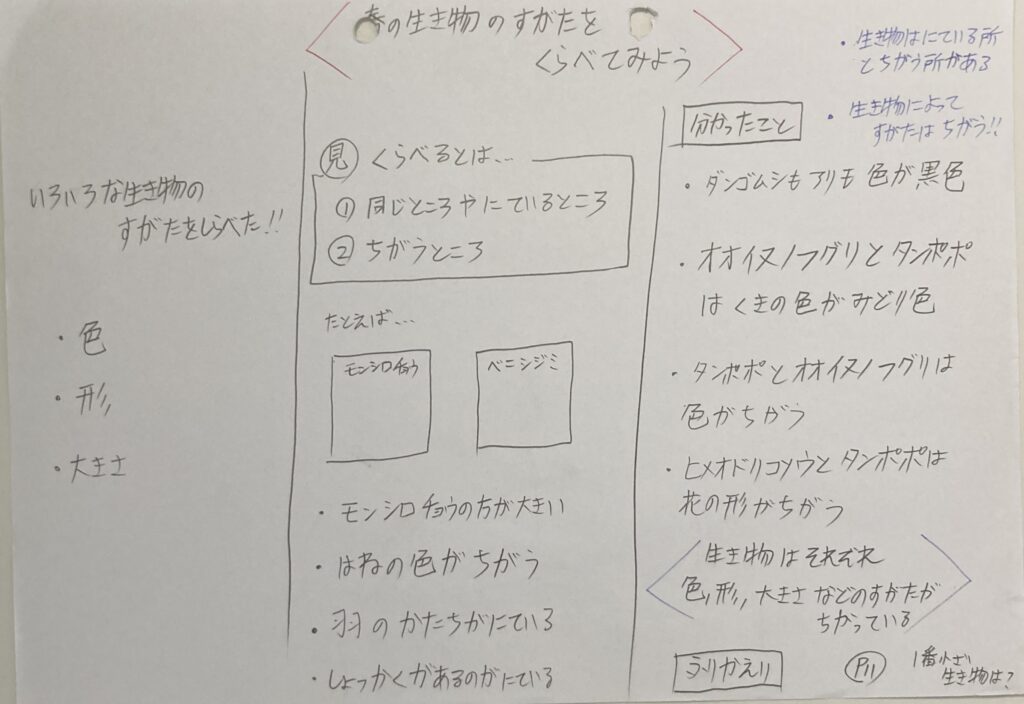 春の生き物のすがたを
くらべてみよう
いろいろな生き物の
すがたをしらべた!!
・色
・形
・大きさ
見 くらべるとは…
① 同じところやにているところ
② ちがうところ
たとえば…
モンシロチョウ
ベニシジミ
・モンシロチョウの方が大きい
・はねの色がちがう
・羽のかたちがにている
・しょっかくがあるのがにている
・生き物はにている所
とちがう所がある
・生き物によって
すがたはちがう!!
分かったこと
・ダンゴムシもアリモ色が黒色
・オオイヌノフグリとタンポポ
はくきの色がみどり色
・タンポポとオオイヌノフグリは
色がちがう
・ヒメオドリコソウとタンポポは
花の形がちがう
生き物はそれぞれ
色,形,大きさなどのすがたが
ちがっている
ふりかえり
P11
1番小さい
生き物は?